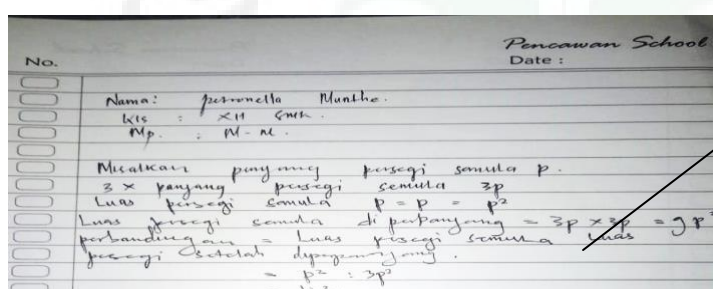 Pencawan School
No.
Date :
Nama : petronella Munthe.
Kls : XII SMK.
Mp. : M-M.
Misalkan panjang persegi semula p.
3 x panjang persegi semula 3p
Luas persegi semula p = p = p²
Luas persegi semula di perpanjang = 3p x 3p = 9p²
perbandingan = Luas persegi semula Luas
persegi setelah diperpanjang.
= p² : 3p²